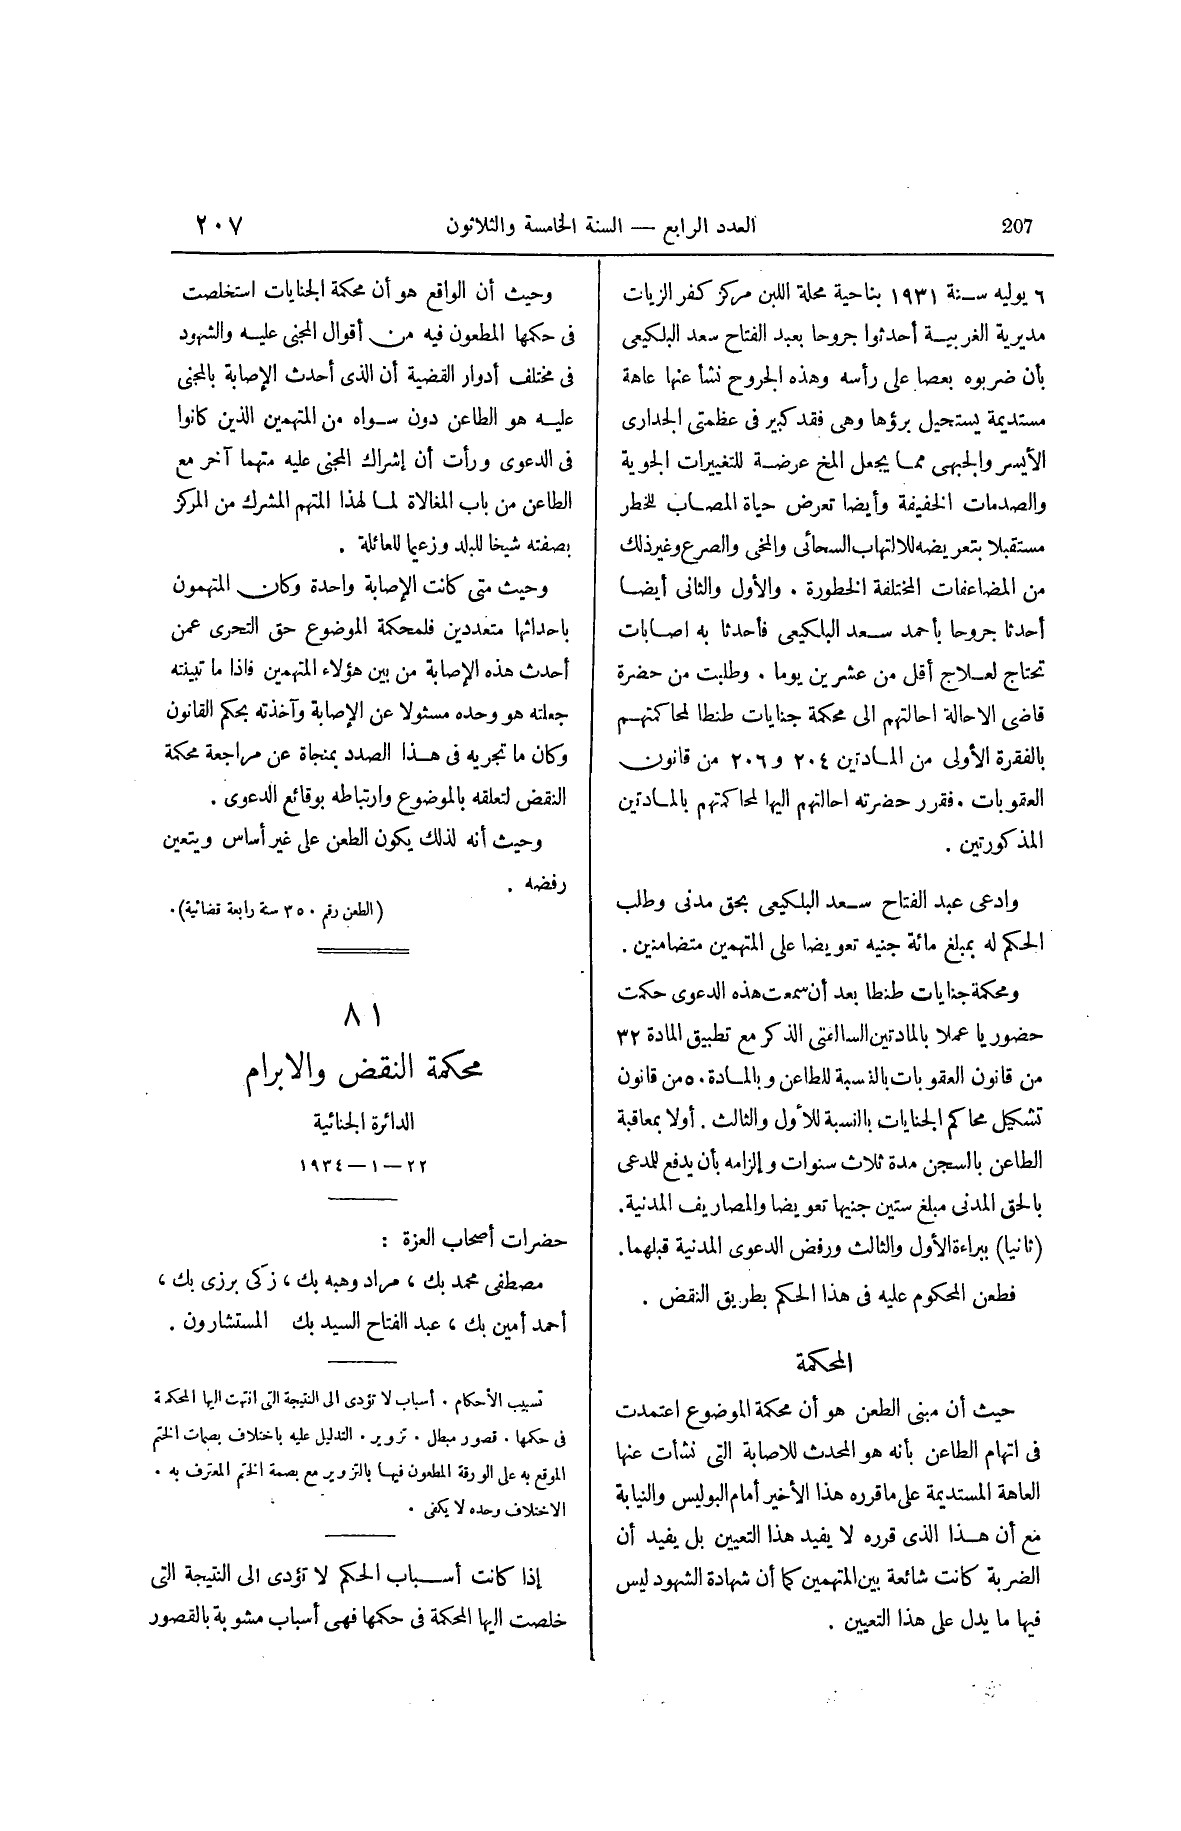 207
العدد الرابع — السنة الخامسة والثلاثون
٢٠٧
٦ يوليه سنة ١٩٣١ بناحية محلة اللبن مركز كفر الزيات
مديرية الغربية أحدثوا جروحا بعبد الفتاح سعد البلكيعى
بأن ضربوه بعصا على رأسه وهذه الجروح نشأ عنها عاهة
مستديمة يستحيل برؤها وهى فقد كبير فى عظمتى الجدارى
الأيسر والجبهى مما يجعل المخ عرضة للتغييرات الجوية
والصدمات الخفيفة وأيضا تعرض حياة المصاب للخطر
مستقبلا بتعريضه للالتهاب السحائى والمخى والصرع وغير ذلك
من المضاعفات المختلفة الخطورة . والأول والثانى أيضا
أحدثا جروحا بأحمد سعد البلكيعى فأحدثا به اصابات
تحتاج لعلاج أقل من عشرين يوما . وطلبت من حضرة
قاضى الاحالة احالتهم الى محكمة جنايات طنطا لمحاكمتهم
بالفقرة الأولى من المادتين ٢٠٤ و ٢٠٦ من قانون
العقوبات . فقرر حضرته احالتهم اليها لمحاكمتهم بالمادتين
المذكورتين .
وادعى عبد الفتاح سعد البلكيعى بحق مدنى وطلب
الحكم له بمبلغ مائة جنيه تعويضا على المتهمين متضامنين .
ومحكمة جنايات طنطا بعد أن سمعت هذه الدعوى حكمت
حضوريا عملا بالمادتين السالفتى الذكر مع تطبيق المادة ٣٢
من قانون العقوبات بالنسبة للطاعن وبالمادة ٥٠ من قانون
تشكيل محاكم الجنايات بالنسبة للأول والثالث . أولا بمعاقبة
الطاعن بالسجن مدة ثلاث سنوات وإلزامه بأن يدفع للمدعى
بالحق المدنى مبلغ ستين جنيها تعويضا والمصاريف المدنية .
(ثانيا) ببراءة الأول والثالث ورفض الدعوى المدنية قبلهما .
فطعن المحكوم عليه فى هذا الحكم بطريق النقض .
المحكمة
حيث أن مبنى الطعن هو أن محكمة الموضوع اعتمدت
فى اتهام الطاعن بأنه هو المحدث للاصابة التى نشأت عنها
العاهة المستديمة على ما قرره هذا الأخير أمام البوليس والنيابة
مع أن هذا الذى قرره لا يفيد هذا التعيين بل يفيد أن
الضربة كانت شائعة بين المتهمين كما أن شهادة الشهود ليس
فيها ما يدل على هذا التعيين .
وحيث أن الواقع هو أن محكمة الجنايات استخلصت
فى حكمها المطعون فيه من أقوال المجنى عليه والشهود
فى مختلف أدوار القضية أن الذى أحدث الإصابة بالمجنى
عليه هو الطاعن دون سواه من المتهمين الذين كانوا
فى الدعوى ورأت أن إشراك المجنى عليه متهما آخر مع
الطاعن من باب المغالاة لما لهذا المتهم المشرك من المركز
بصفته شيخا للبلد وزعيما للعائلة .
وحيث متى كانت الإصابة واحدة وكان المتهمون
باحداثها متعددين فلمحكمة الموضوع حق التحرى عمن
أحدث هذه الإصابة من بين هؤلاء المتهمين فاذا ما تبينته
جعلته هو وحده مسئولا عن الإصابة وآخذته بحكم القانون
وكان ما تجريه فى هذا الصدد بمنجاة عن مراجعة محكمة
النقض لتعلقه بالموضوع وارتباطه بوقائع الدعوى .
وحيث أنه لذلك يكون الطعن على غير أساس ويتعين
رفضه .
(الطعن رقم ٣٥٠ سنة رابعة قضائية) .
٨١
محكمة النقض والابرام
الدائرة الجنائية
٢٢ — ١ — ١٩٣٤
حضرات أصحاب العزة :
مصطفى محمد بك ، مراد وهبه بك ، زكى برزى بك ،
أحمد أمين بك ، عبد الفتاح السيد بك المستشارون .
تسبيب الأحكام . أسباب لا تؤدى الى النتيجة التى انتهت اليها المحكمة
فى حكمها . قصور مبطل . تزوير . التدليل عليه باختلاف بصمات الختم
الموقع به على الورقة المطعون فيها بالتزوير مع بصمة الختم المعترف به .
الاختلاف وحده لا يكفى .
إذا كانت أسباب الحكم لا تؤدى الى النتيجة التى
خلصت اليها المحكمة فى حكمها فهى أسباب مشوبة بالقصور